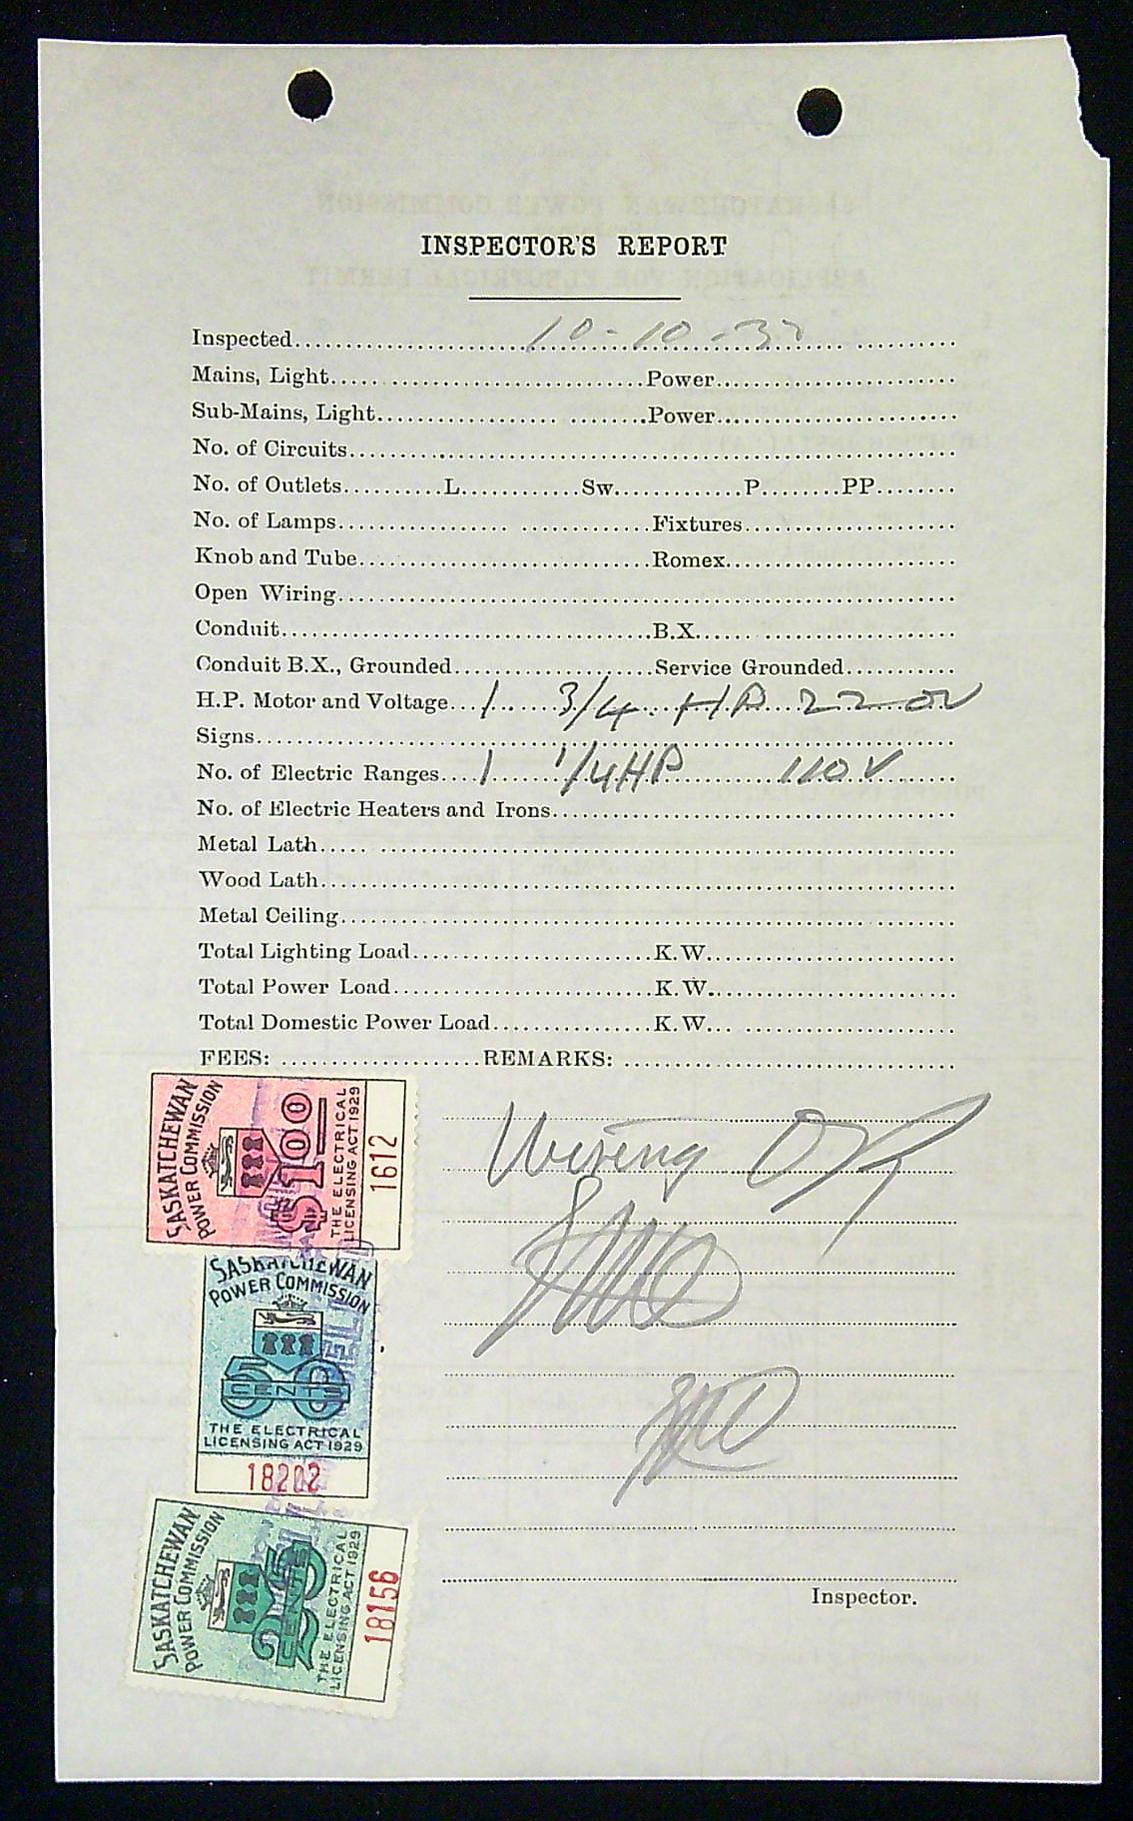 INSPECTOR'S REPORT
Inspected 10-10-37
Mains, Light Power
Sub-Mains, Light Power
No. of Circuits
No. of Outlets L Sw. P PP
No. of Lamps Fixtures
Knob and Tube Romex
Open Wiring
Conduit B.X.
Conduit B.X., Grounded Service Grounded
H.P. Motor and Voltage 1 3/4 HP 220V
Signs
No. of Electric Ranges 1 1/4 HP 110V
No. of Electric Heaters and Irons
Metal Lath
Wood Lath
Metal Ceiling
Total Lighting Load K.W.
Total Power Load K.W.
Total Domestic Power Load K.W.
FEES: REMARKS:
Wiring OK
SASKATCHEWAN
POWER COMMISSION
$1.00
THE ELECTRICAL
LICENSING ACT 1929
1612
SASKATCHEWAN
POWER COMMISSION
50
CENTS
THE ELECTRICAL
LICENSING ACT 1929
18202
SASKATCHEWAN
POWER COMMISSION
25
CENTS
THE ELECTRICAL
LICENSING ACT 1929
18156
Inspector.